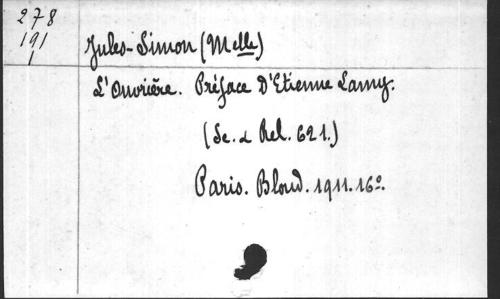 278
191
1
Jules-Simon (Melle)
L'Ouvrière. Préface D'Etienne Lamy.
(Sc. & Rel. 621.)
Paris. Bloud. 1911. 16º.